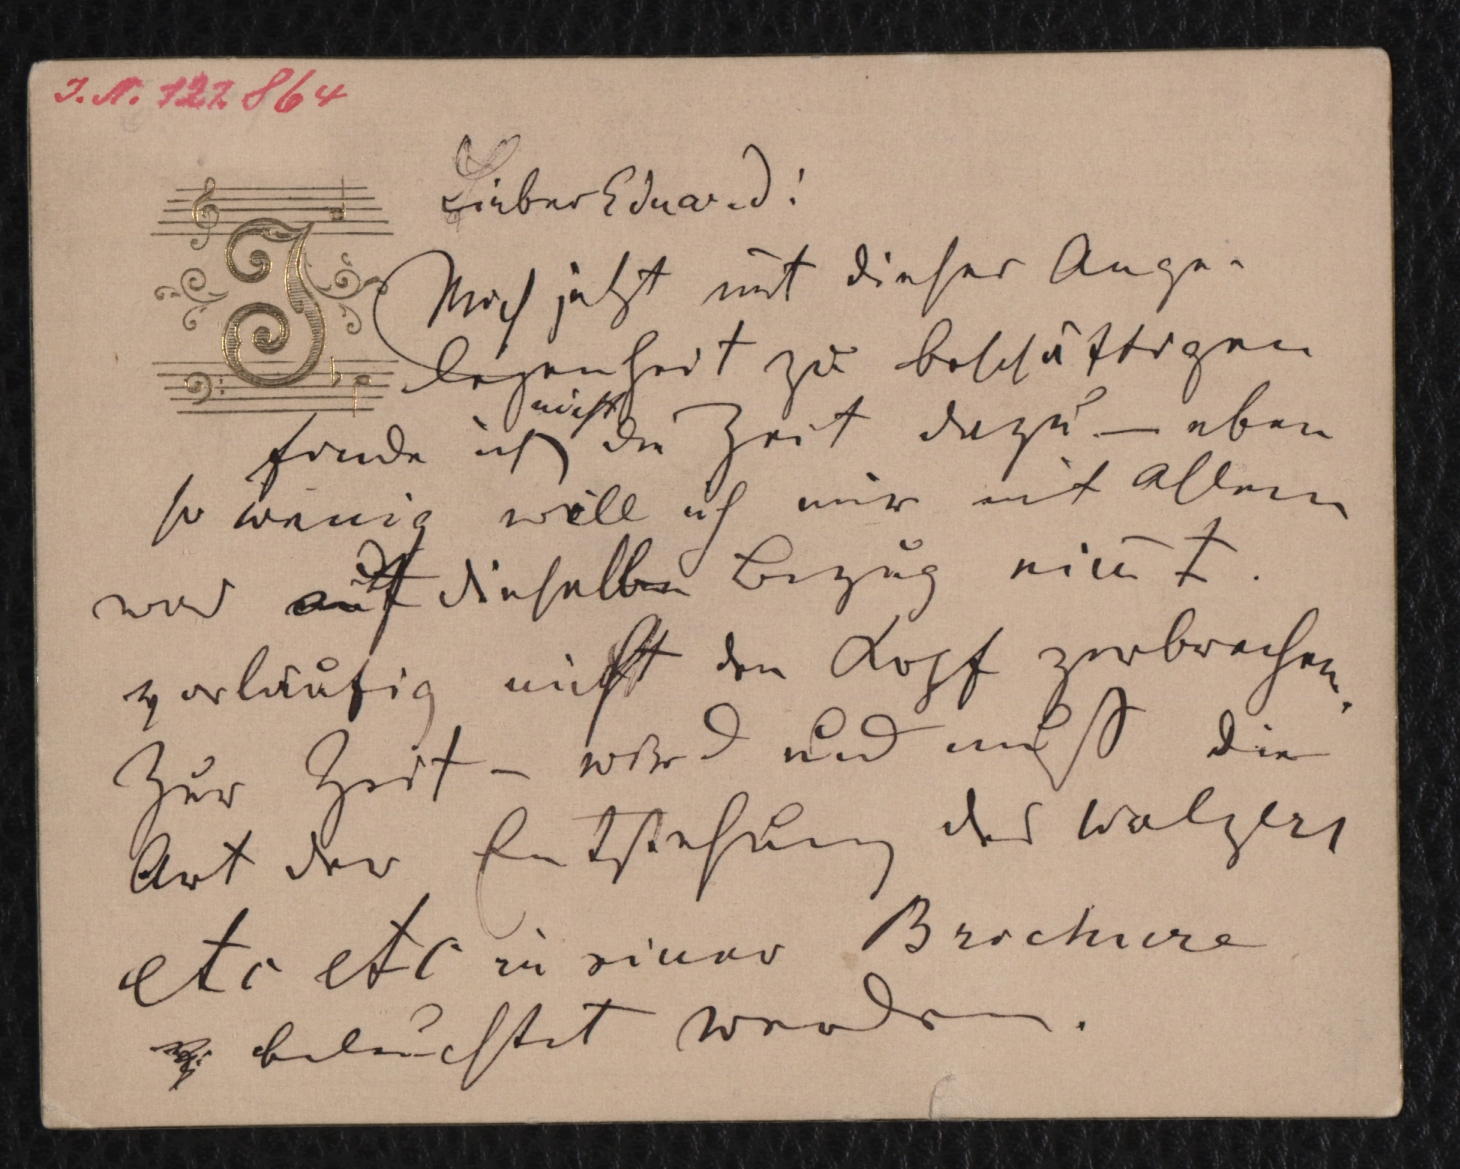 J. N. 122864
J
Lieber Eduard!
Mich jetzt mit dieser Ange-
legenheit zu beschäftigen
finde ich nicht die Zeit dazu — eben
so wenig will ich mir mit allem
was auf dieselbe Bezug nim̄t.
vorläufig nicht den Kopf zerbrechen.
Zur Zeit – wird und muß die
Art der Entstehung des Walzers
etc etc in einer Brochure
beleuchtet werden.